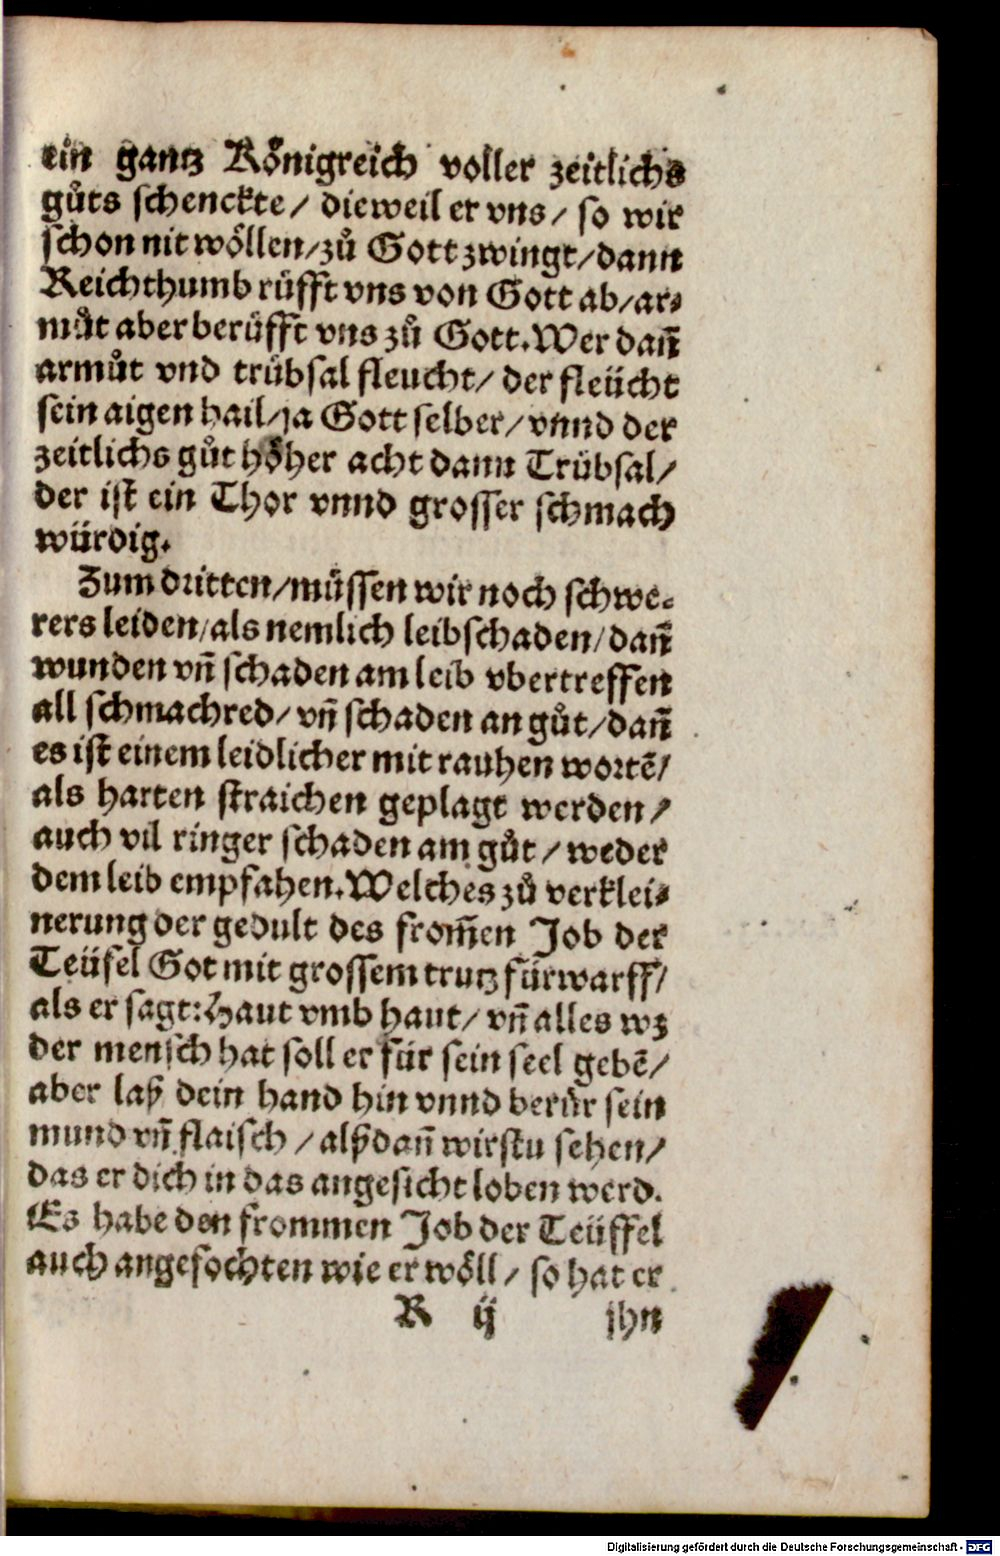 ein gantz Koͤnigreich voller zeitlichs
guͦts schenckte / dieweil er vns / so wir
schon nit woͤllen / zuͦ Gott zwingt / dann
Reichthumb ruͤfft vns von Gott ab / ar⸗
muͦt aber beruͤfft vns zuͦ Gott. Wer dañ
armuͦt vnd truͤbsal fleucht / der fleücht
sein aigen hail / ja Gott selber / vnnd der
zeitlichs guͦt hoͤher acht dann Truͤbsal /
der ist ein Thor vnnd grosser schmach
würdig.
Zum dritten / muͤssen wir noch schwe⸗
rers leiden / als nemlich leibschaden / dañ
wunden vñ schaden am leib vbertreffen
all schmachred / vñ schaden an guͦt / dañ
es ist einem leidlicher mit rauhen wortẽ /
als harten straichen geplagt werden /
auch vil ringer schaden am guͦt / weder
dem leib empfahen. Welches zuͦ verklei⸗
nerung der gedult des from̃en Job der
Teüfel Got mit grossem trutz fürwarff /
als er sagt: Haut vmb haut / vñ alles wz
der mensch hat soll er für sein seel gebẽ /
aber laß dein hand hin vnnd beruͤr sein
mund vñ flaisch / alßdañ wirstu sehen /
das er dich in das angesicht loben werd.
Es habe den frommen Job der Teüffel
auch angefochten wie er woͤll / so hat er
R ij jhn
Digitalisierung gefördert durch die Deutsche Forschungsgemeinschaft - DFG